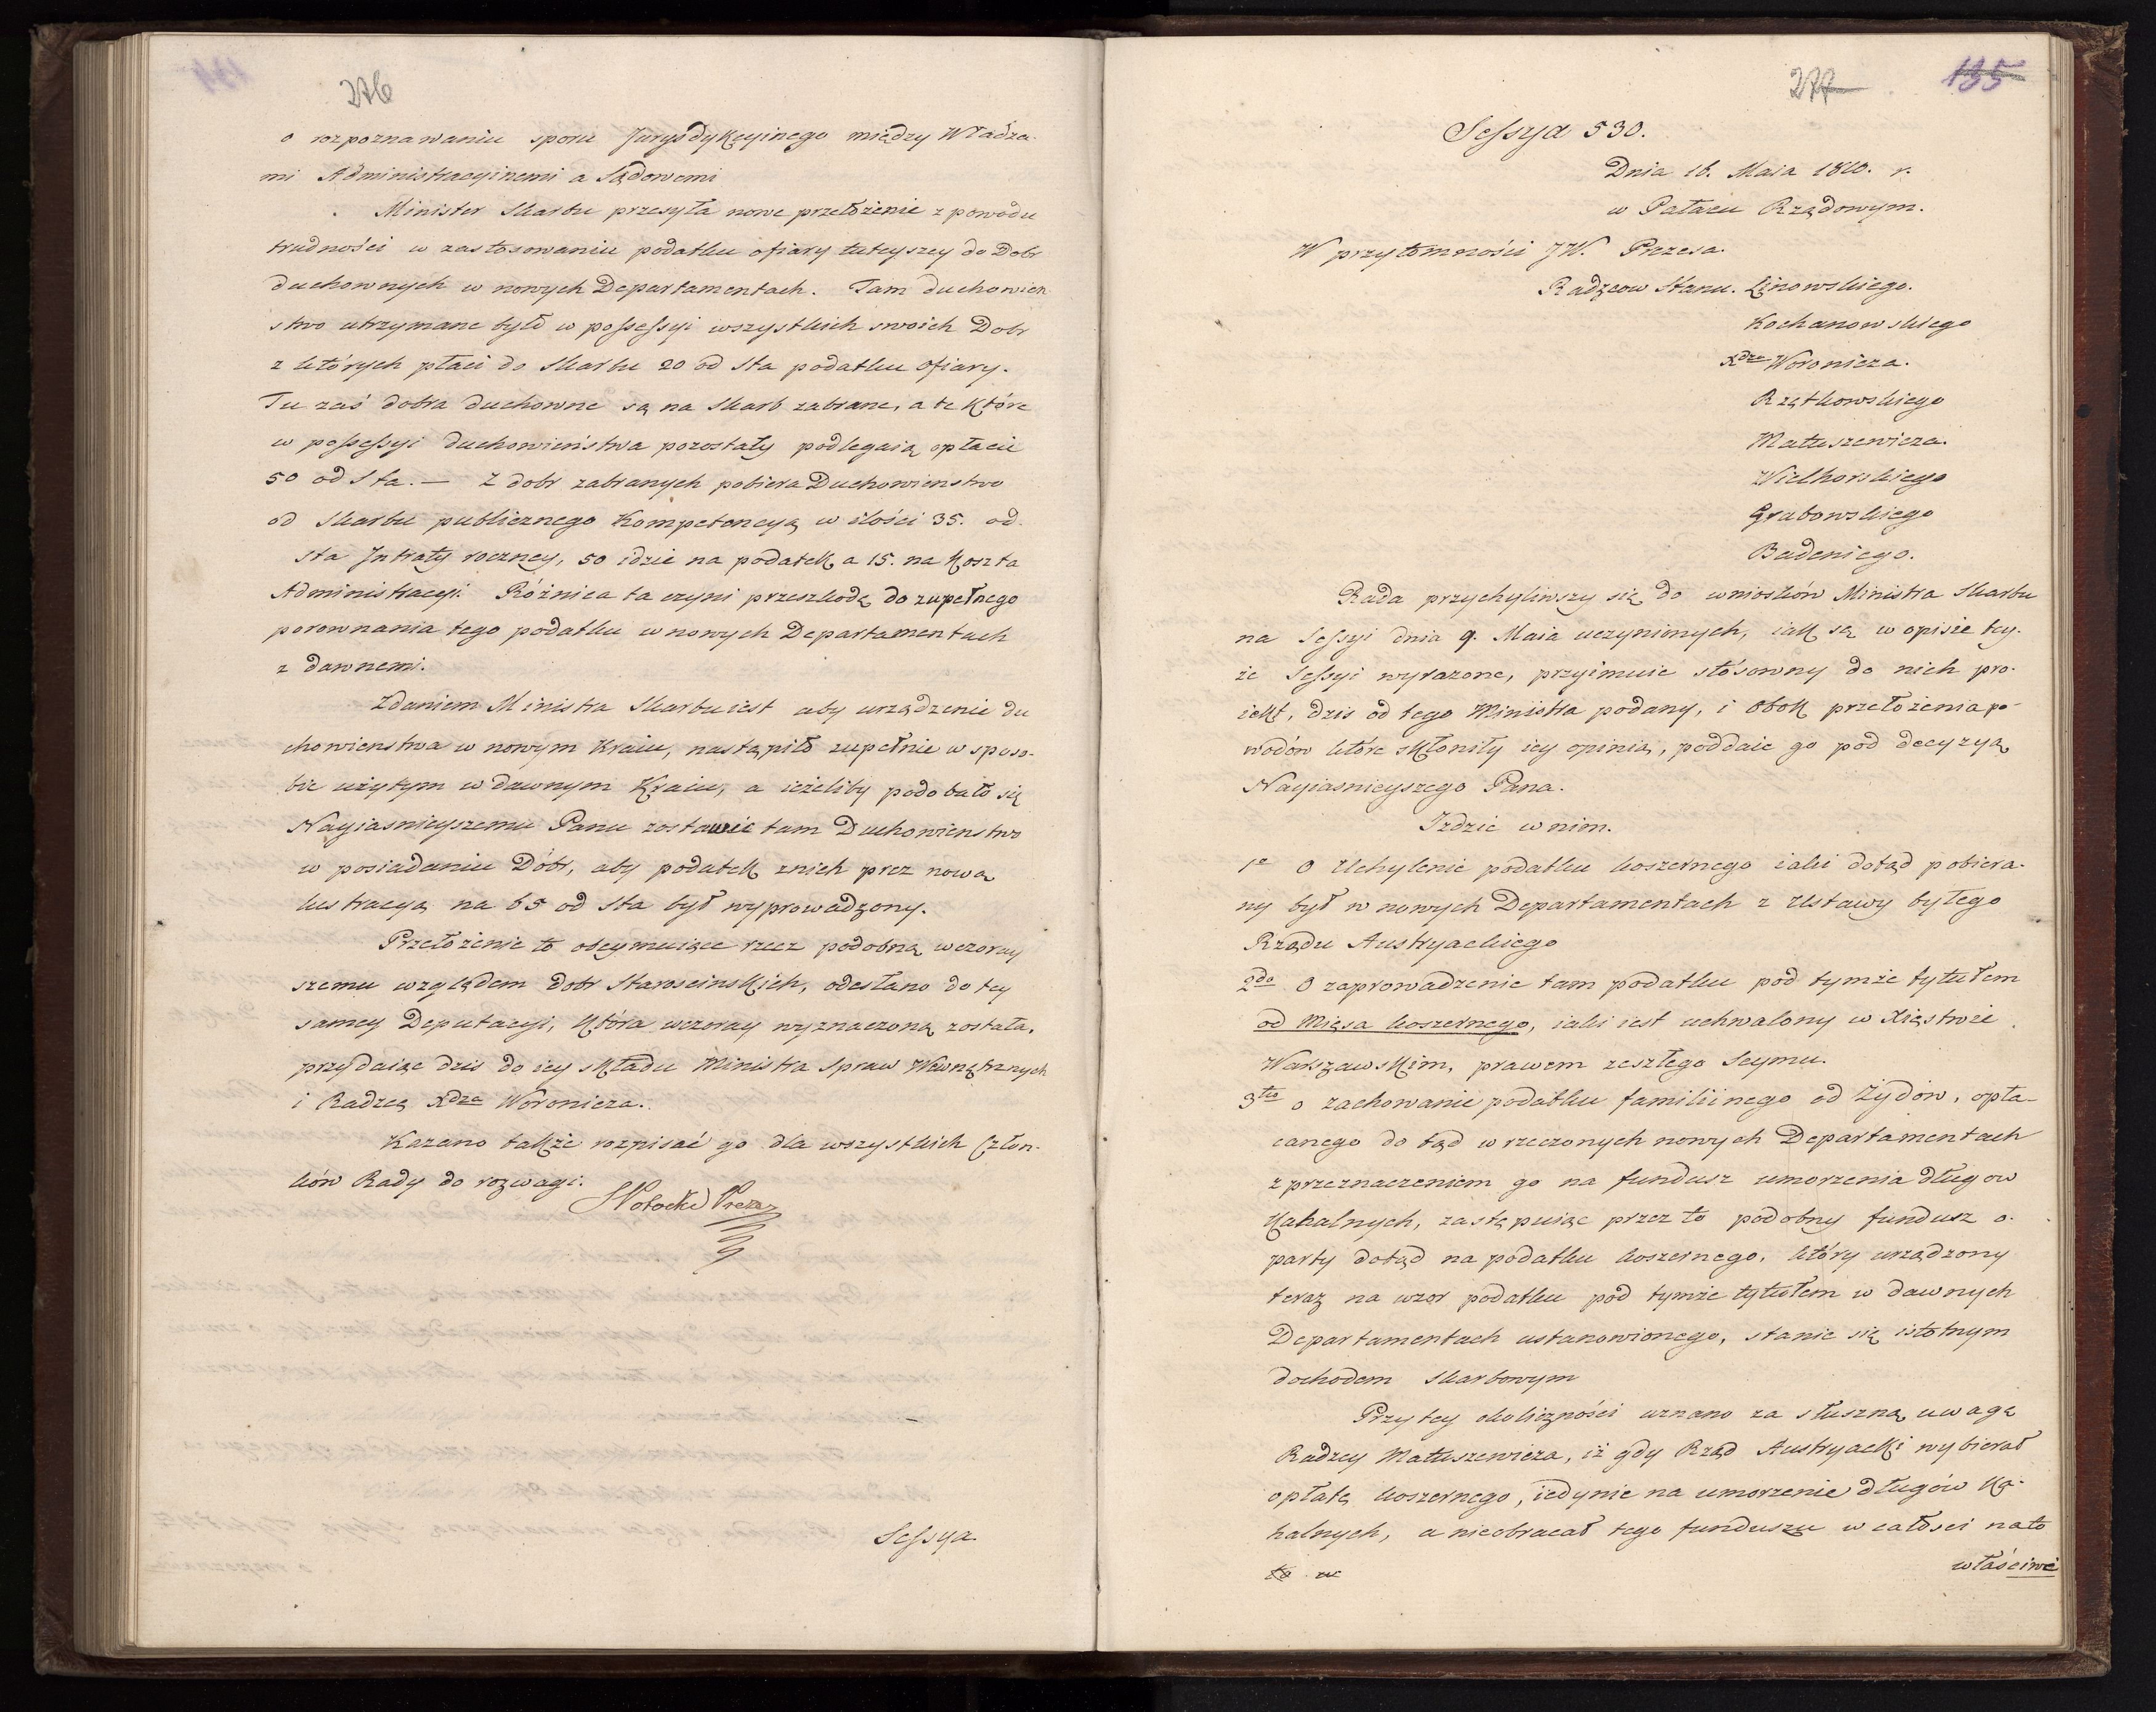 276
o rozpoznawaniu sporu Jurysdykcyinego między Władza-
mi Administracyinemi a Sądowemi
Minister Skarbu przesyła nowe przełożenie z powodu
trudności w zastosowaniu podatku ofiary tuteyszey do Dobr
duchownych w nowych Departamentach. Tam duchowień
stwo utrzymane było w possessyi wszystkich swoich Dobr
z których płaci do Skarbu 20 od Sta podatku Ofiary.
Tu zaś dobra duchowne są na Skarb zabrane, a te które
w possessyi duchowieństwa pozostały podlegaią opłacie
50 od Sta. — Z dobr zabranych pobiera Duchowienstwo
od Skarbu publicznego Kompetencyą w ilości 35. od
sta Jntraty roczney, 50 idzie na podatek a 15. na Koszta
Administracyi. Różnica ta czyni przeszkodę do zupełnego
porownania tego podatku w nowych Departamentach
z dawnemi.
Zdaniem Ministra Skarbu iest aby urządzenie du
chowienstwa w nowym Kraiu, nastąpiło zupełnie w sposo-
bie użytym w dawnym Kraiu, a ieżeliby podobało się
Nayiasnieyszemu Panu zostawić tam Duchowienstwo
w posiadaniu Dóbr, aby podatek z nich prez nową
lustracyą na 65 od sta był wyprowadzony.
Przełożenie to obeymuiące rzecz podobną wczoray
szemu względem dobr Staroscinskich, odesłano do tey
samey Deputacyi, która wczoray wyznaczoną została,
przydaiąc dzis do iey składu Ministra Spraw Wewnętrznych
i Radzcę Xdza Woronicza.
Kazano także rozpisać go dla wszystkich Człon-
ków Rady do rozwagi.
SPotocki Prezes
Sessya
277 135
Sessya 530.
Dnia 16. Maia 1810. r.
w Pałacu Rządowym.
W przytomności JW. Prezesa.
Radzcow Stanu. Linowskiego.
Kochanowskiego
Xdza Woronicza.
Rzętkowskiego
Matuszewicza.
Wielhorskiego
Grabowskiego
Badeniego.
Rada przychyliwszy się do wniosków Ministra Skarbu
na Sessyi dnia 9. Maia uczynionych, iak są w opisie tey-
że Sessyi wyrazone, przyimuie stósowny do nich pro-
iekt, dzis od tego Ministra podany, i obok przełożenia po-
wodów które skłoniły iey opinią, poddaie go pod decyzyą
Nayiasnieyszego Pana.
Jzdzie w nim.
1o O Uchylenie podatku koszernego iaki dotąd pobiera-
ny był w nowych Departamentach z Ustawy byłego
Rządu Austryackiego
2do O zaprowadzenie tam podatku pod tymże tytułem
od Mięsa koszernego, iaki iest uchwalony w Xięstwie
Warszawskim, prawem zeszłego Seymu.
3tio o zachowanie podatku familiinego od Żydów, opła-
canego do tąd w rzeczonych nowych Departamentach
z przeznaczeniem go na fundusz umorzenia długow
Kahalnych, zastępuiąc przez to podobny fundusz o-
party dotąd na podatku koszernego, który urządzony
teraz na wzor podatku pod tymże tytułem w dawnych
Departamentach ustanowionego, stanie się istotnym
dochodem Skarbowym
Przy tey okoliczności uznano za słuszną uwagę
Radzcy Matuszewicza, iż gdy Rząd Austryacki wybierał
opłatę koszernego, iedynie na umorzenie długów Ka-
halnych, a nieobracał tego funduszu w całości na to
właściwe